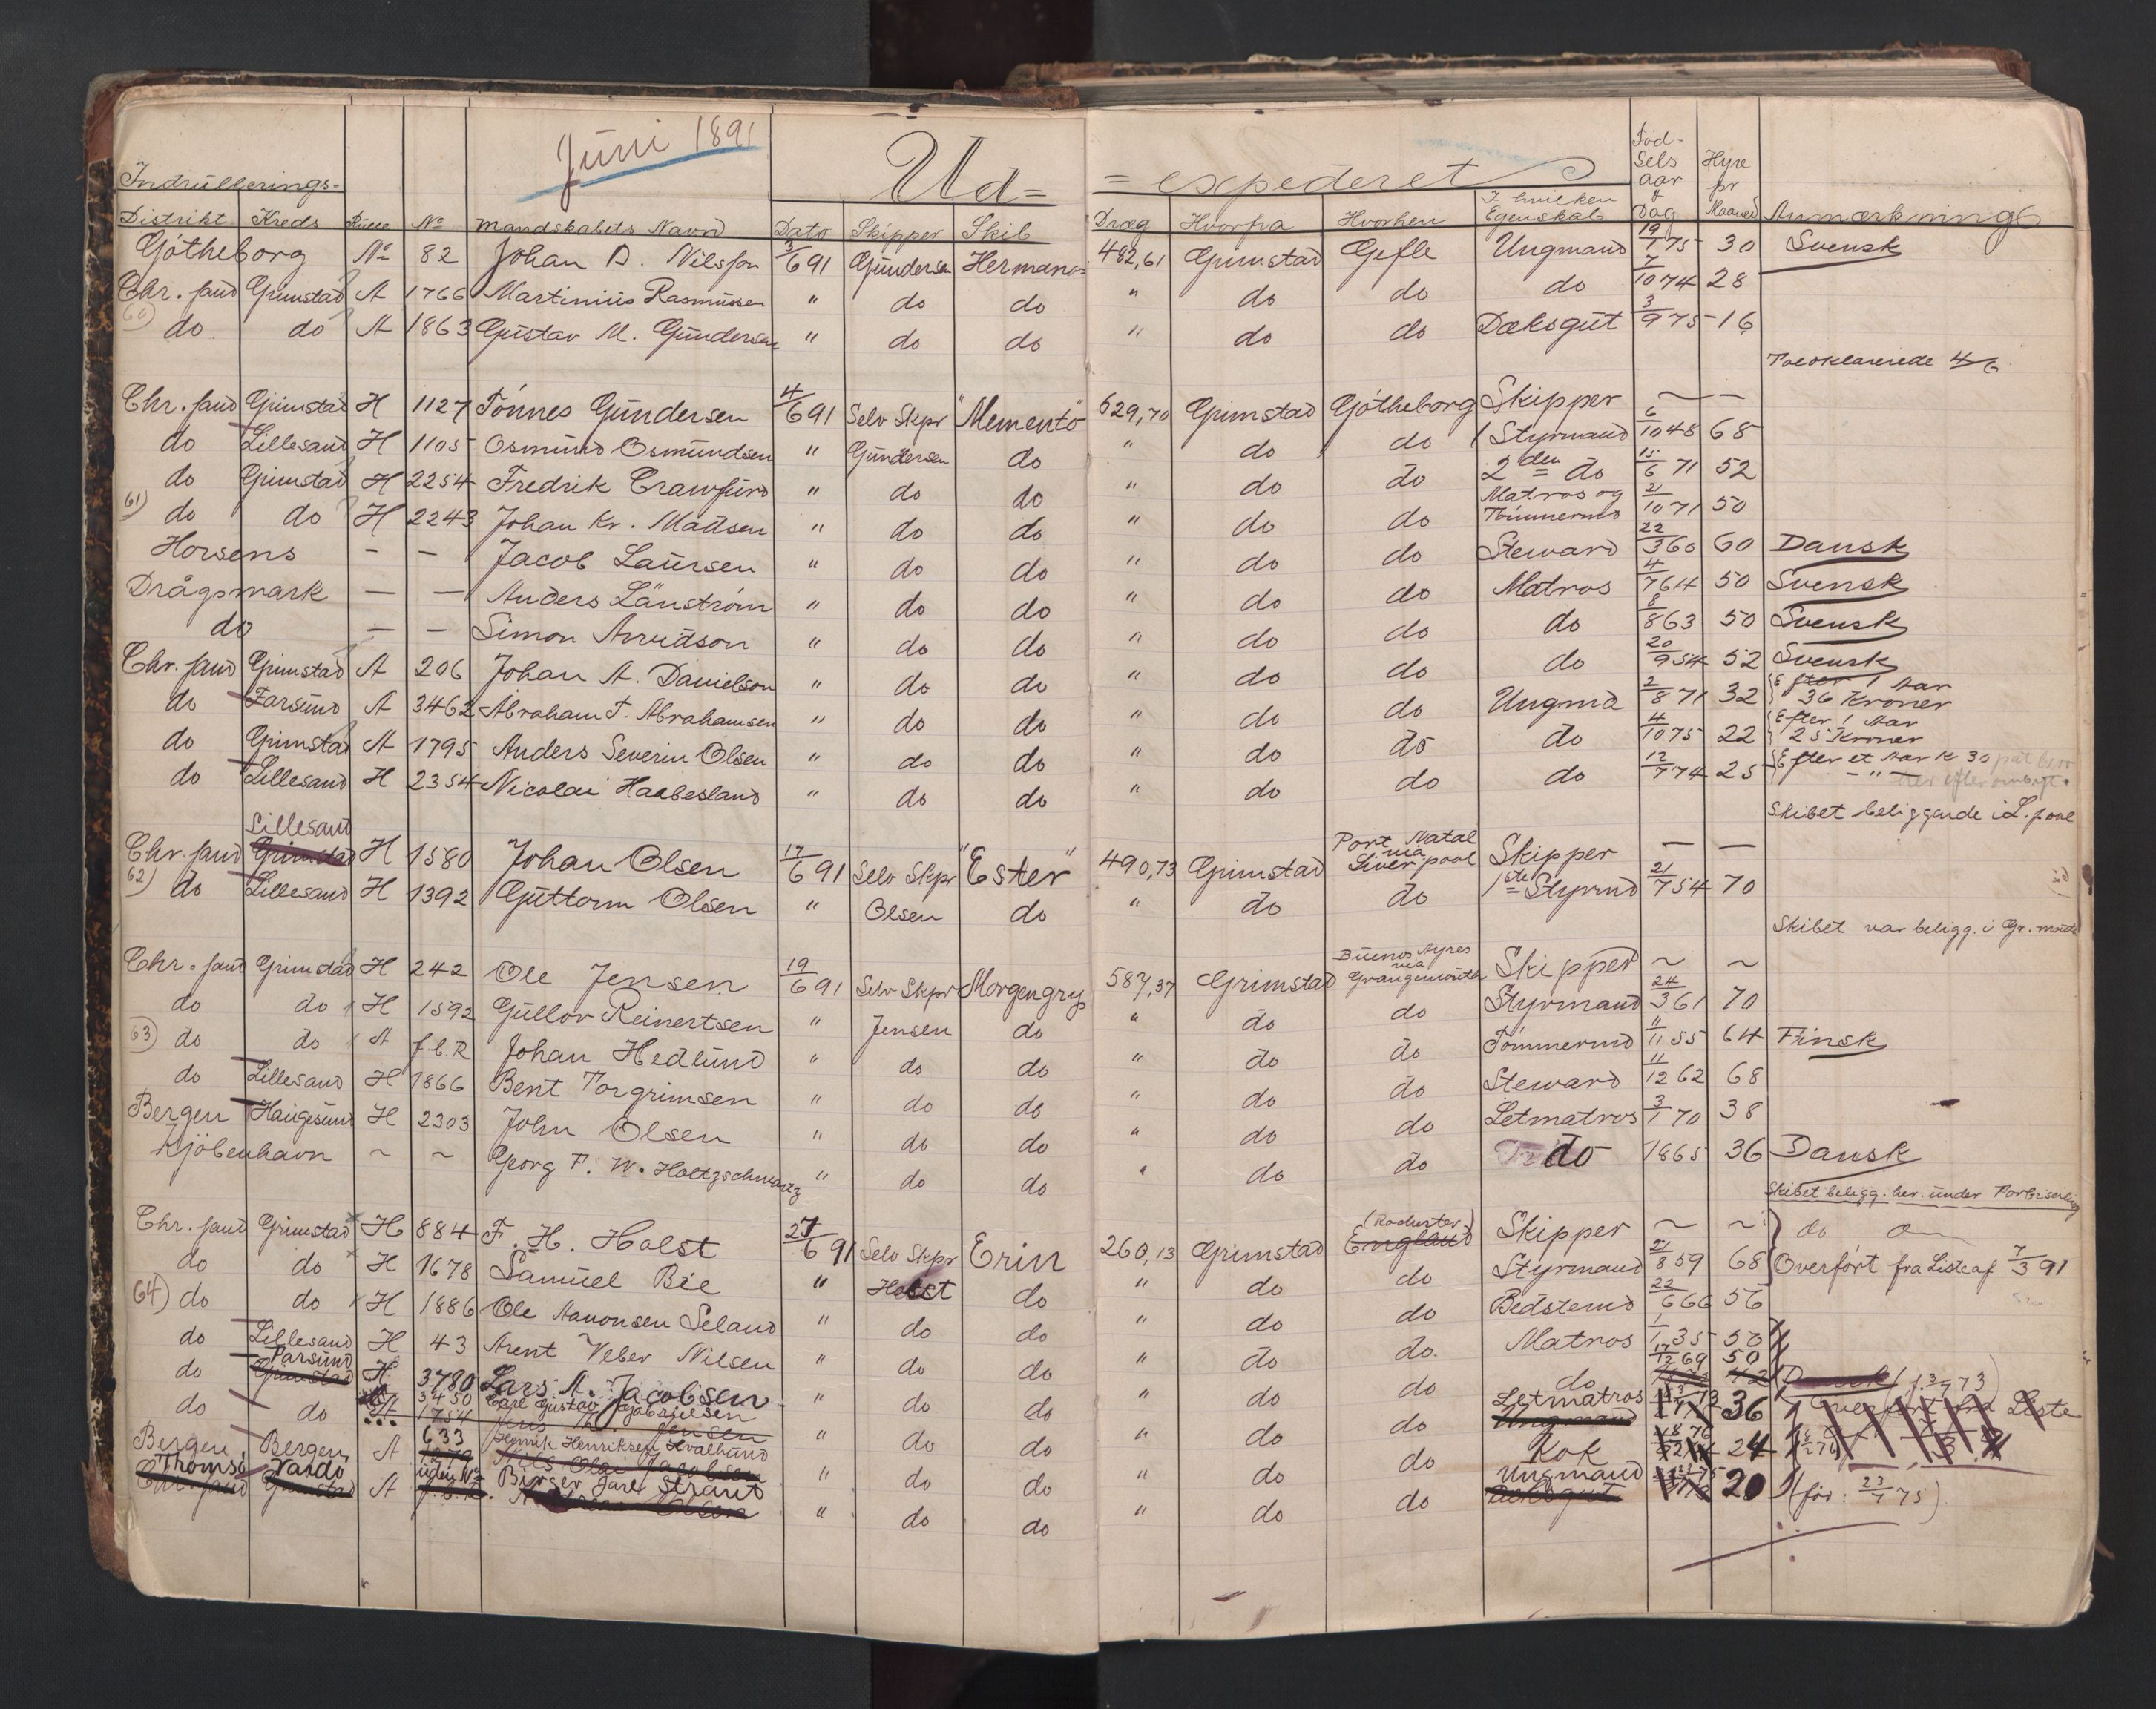 Juni 1891
Ud= =expederet
Indrulerings-
Distrikt Kreds Rulle No Mandskabets Navn Dato Skipper Skib Dræg Hvorfra Hvorhen I hvilken Egenskab Fødselsaar & Dag Hyre pr Maaned Anmærkning
Gøtheborg No 82 Johan D. Nilsson 3/6 91 Gundersen Hermanos 482,61 Grimstad Gefle Ungmand 19/1 75 30 Svensk
Chr.sand Grimstad A 1766 Martinius Rasmussen " do do " do do do 7/10 74 28
60) do do A 1863 Gustav M. Gundersen " do do " do do Dæksgut 3/9 75 16
Toldklarerede 4/6
Chr.sand Grimstad H 1127 Tønnes Gundersen 4/6 91 Selv Skpr "Memento" 629,70 Grimstad Gøtheborg Skipper ~ ~
do Lillesand H 1105 Osmund Osmundsen " Gundersen do " do do 1 Styrmand 6/10 48 68
do Grimstad H 2254 Fredrik Crawfurd " do do " do do 2den do 15/6 71 52
61) do do H 2243 Johan Kr. Madsen " do do " do do Matros og Tømmermd 21/10 71 50
Horsens - - Jacob Laursen " do do " do do Steward 22/3 60 60 Dansk
Drågsmark - - Anders Länström " do do " do do Matros 4/7 64 50 Svensk
do - - Simon Arvidson " do do " do do do 8/8 63 50 Svensk
Chr.sand Grimstad A 206 Johan A. Danielson " do do " do do do 20/9 54 52 Svensk
do Farsund A 3462 Abraham T. Abrahamsen " do do " do do Ungmd 2/8 71 32 Efter 1 Aar 36 Kroner
do Grimstad A 1795 Anders Severin Olsen " do do " do do do 4/10 75 22 Efter 1 Aar 25 Kroner
do Lillesand H 2354 Nicolai Haabesland " do do " do do do 12/7 74 25 Efter et Aar K 30
Skibet beliggende i L.pool
Chr.sand Lillesand Grimstad H 1580 Johan Olsen 17/6 91 Selv Skpr "Ester" 490,73 Grimstad Port Natal via Liverpool Skipper - -
62) do Lillesand H 1392 Guttorm Olsen " Olsen do " do do 1ste Styrmd 21/7 54 70
Skibet var beligg. i Gr.mouth
Chr.sand Grimstad H 242 Ole Jensen 19/6 91 Selv Skpr Morgengry 587,37 Grimstad Buenos Ayres via Grangemouth Skipper ~ ~
do do H 1592 Gullov Reinertsen " Jensen do " do do Styrmand 24/3 61 70
63) do do A f.b.R Johan Hedlund " do do " do do Tømmermd 11/11 55 64 Finsk
do Lillesand H 1866 Bent Torgrimsen " do do " do do Steward 11/12 62 68
Bergen Haugesund H 2303 John Olsen " do do " do do Letmatros 3/1 70 38
Kjöbenhavn ~ ~ Georg F. W. Holtzschwartz " do do " do do do 1865 36 Dansk
Skibet beligg. her. under Forbiseiling
Chr.sand Grimstad H 884 F. H. Holst 27/6 91 Selv Skpr Erin 260,13 Grimstad (Rochester) England Skipper ~ ~ do
do do H 1678 Samuel Bie " Holst do " do do Styrmand 21/8 59 68 Overført fra Liste af 7/3 91
64) do do H 1886 Ole Aanonsen Seland " do do " do do Bedstemd 22/6 66 56
do Lillesand H 43 Arent Veber Nilsen " do do " do do. Matros 1/1 35 50
do Farsund Grimstad H 3780 Lars M. Jacobsen " do do " do do do 17/12 69 50
do do A 3450 Carl Gustav Gabrielsen 1754 Jens Jensen " do do " do do Letmatros Ungmand 36 Overført fra Liste
Bergen Bergen A 633 Henrik Henriksen Hvalhund 1279 Nils Olai Jacobsen " do do " do do Kok 24
Thomsø Vardø Chr.sand Grimstad A uden No f.b.R. Birger Jarl Strand " do do " do do Ungmand Dæksgut 20 (før: 23/7 75)